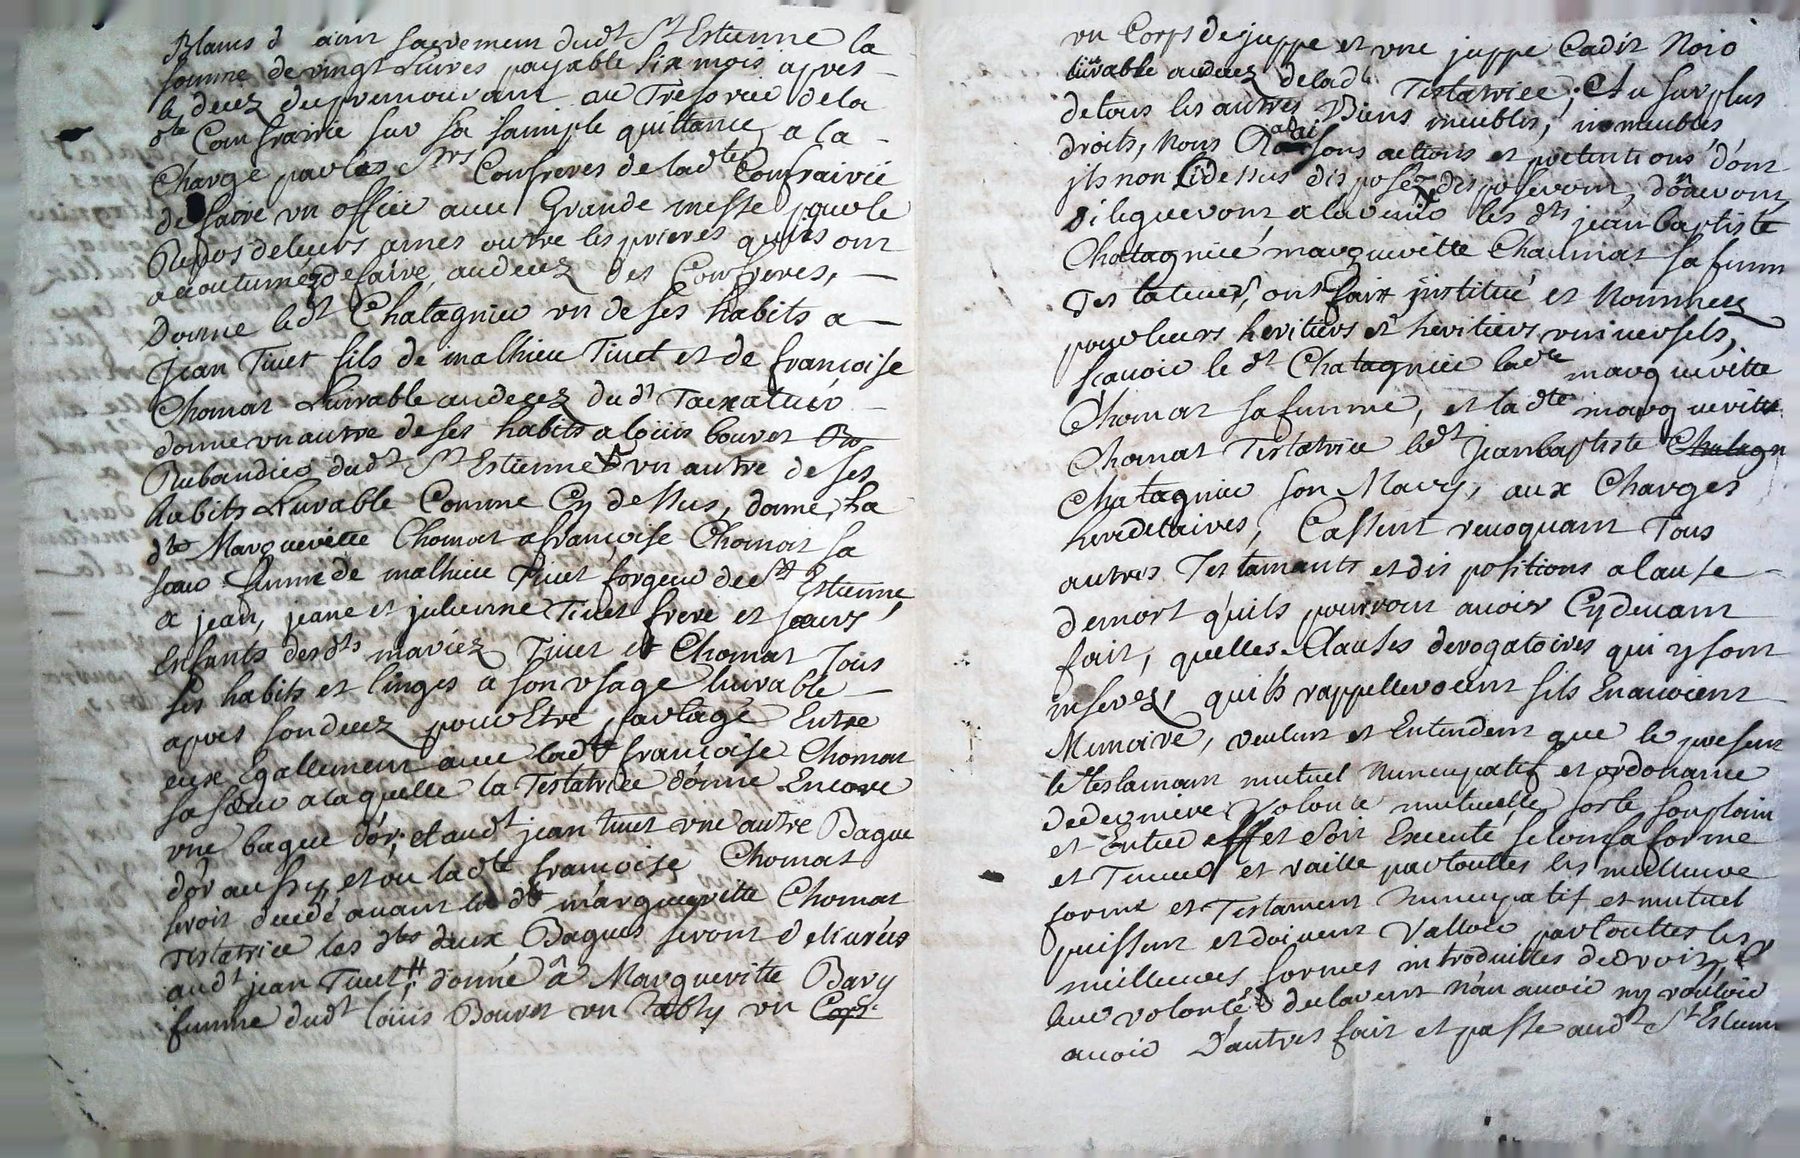 Blancs d sacrement dudt St Estienne la
somme de vingt Livres payable six mois apres
le decez du premourant au Trésorier de la
dte Confrairie sur sa simple quittance a la
Charge par les Srs Confreres de ladte Confrairie
de faire un office avec Grande messe pour le
Repos de leurs ames outre les prieres qu'ils ont
accoutumez de faire au decez des Confreres,
Donne ledt Chatagnier un de ses habits a
Jean Tivet fils de mathieu Tivet et de françoise
Chomat Livrable au decez dudt
donne un autre de ses habits a Loüis bouvet
Rubandier dudt St Estienne un autre de ses
habits Livrable Comme Cy dessus, donne La
dte Marguerite Chomat a françoise Chomat sa
seur femme de mathieu Tivet forgeur de St Estienne
a jean, jeane et julienne Tivet frere et seurs
Enfants desdts mariez Tivet et Chomat Tous
ses habits et linges a son usage livrable
apres son decez pour Etre partagé Entre
eux Egallement avec ladte françoise Chomat
sa seur a laquelle la Testatrice donne Encore
une bague d'or, et audt jean tivet une autre Bague
d'or aussy, et ou ladte françoise Chomat
seroit decedé avant la dte marguerite Chomat
Testatrice les dtes deux Bagues seront delivrées
audt jean Tivet donne â Marguerite Bary
femme dudt loüis Bouvet un habit un Corps
un Corps de juppe et une juppe Cadit Noir
livrable au decez de ladte Testatrice; Et au surplus
de tous les autres Biens meubles, immeubles
droits, Noms Raisons actions et pretentions dont
ils n'ont Cidessus disposéz, disposeront, doneront,
legueront a lavenir les dts jean baptiste
Chatagnier marguerite Chaumat sa femme
Testateurs, ont fait institué et Nommez
pour leurs heritiers et heritiers universels,
scavoir le dt Chatagnier ladte marguerite
Chomat sa femme, et ladte marguerite
Chomat Testatrice ledt jean baptiste Chatagn
Chatagnier son Mary, aux Charges
hereditaires, Cassent revoquant Tous
autres Testamants et dispositions a lause
demort qu'ils pourront avoir Cydevant
fait, quelles Clauses derogatoires qui y sont
inserez, quils rappelleroient sils En avoient
Memoire, veulent et Entendent que le present
le testamant mutuel Nuncupatif et ordonance
de derniere Volonté mutuelle, sorte son plain
et Entier effet soit Executé selon sa forme
et Teneur et vaille par touttes les meilleure
forme et Testament Nuncupatif et mutuel
puissent et doivent Valloir par touttes les
meilleures formes introduittes de droit,
leur volonté de lavent n'an avoir ny vouloir
avoir D'autres fait et passe audt St Estienne